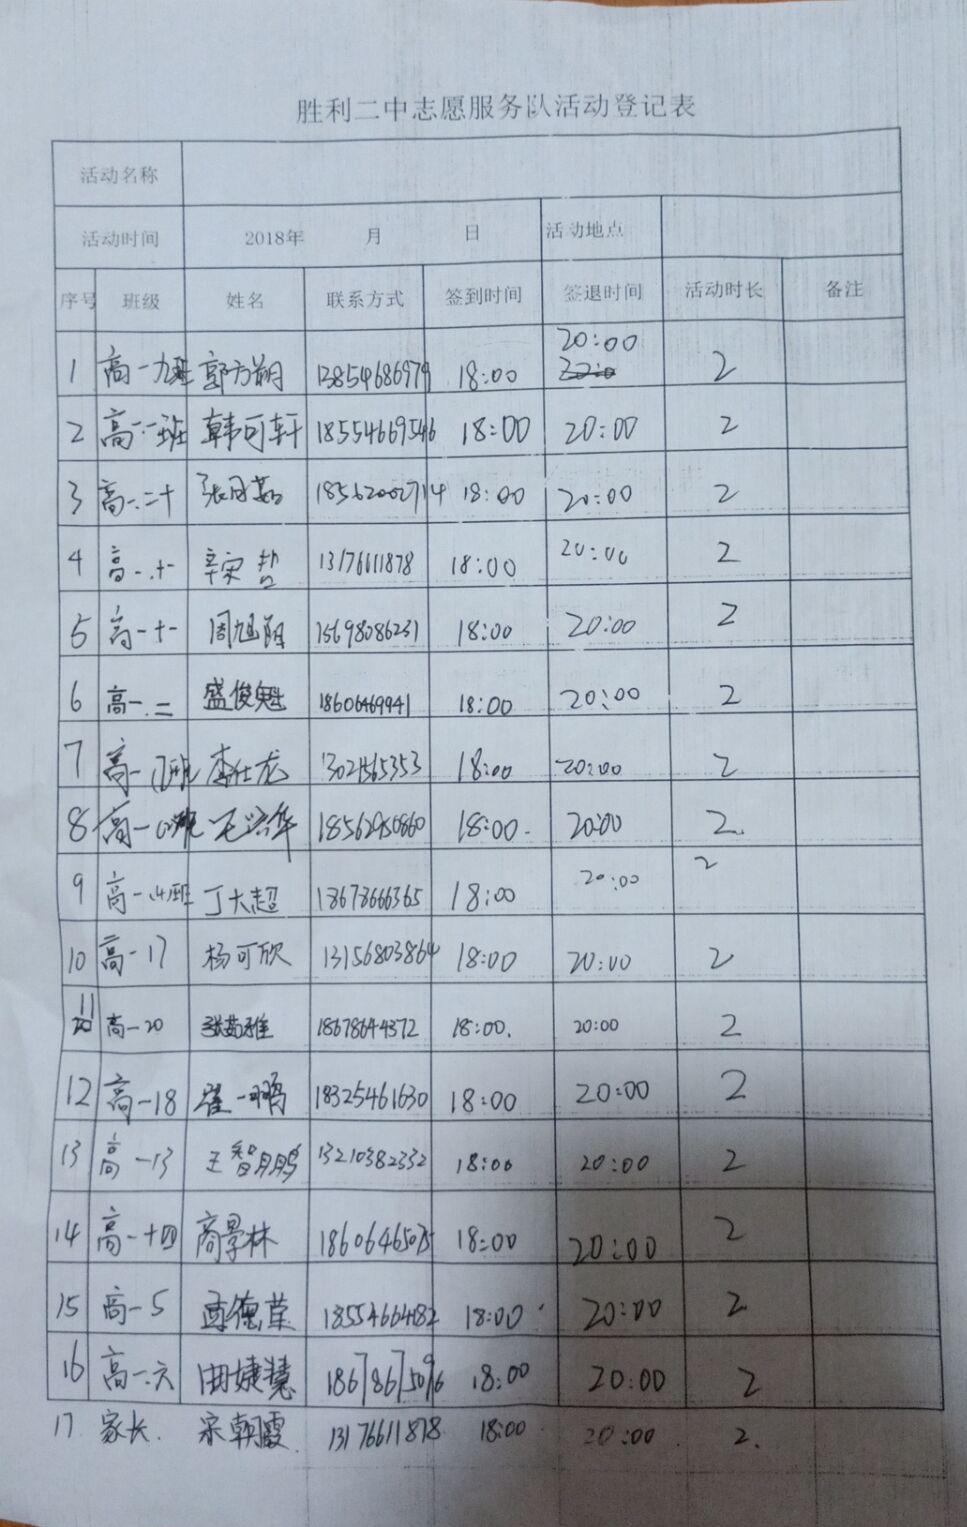 胜利二中志愿服务队活动登记表
活动名称
活动时间 2018年 月 日 活动地点
序号 班级 姓名 联系方式 签到时间 签退时间 活动时长 备注
1 高一九班 13854686979 18:00 20:00 2
2 高一·一班 韩可轩 18554669546 18:00 20:00 2
3 高一.二十 18562002714 18:00 20:00 2
4 高一.十一 辛宋哲 13176611878 18:00 20:00 2
5 高一十一 周旭阳 15698086231 18:00 20:00 2
6 高一.二 盛俊魁 18606469941 18:00 20:00 2
7 高一 李仕龙 13021565353 18:00 20:00 2
8 高一 18562950860 18:00. 20:00 2.
9 高一 丁大超 13673666365 18:00 20:00 2
10 高一17 杨可欣 13156803864 18:00 20:00 2
11 高一20 张茹雅 18678644372 18:00. 20:00 2
12 高一18 崔一鹏 18325461630 18:00 20:00 2
13 高一13 王智鹏 13210382332 18:00 20:00 2
14 高一十四 商景林 18:00 20:00 2
15 高一5 18554664182 18:00 20:00 2
16 高一.六 曲婕慧 18678675096 18:00 20:00 2
17 家长. 宋朝霞. 13176611878 18:00 20:00. 2.